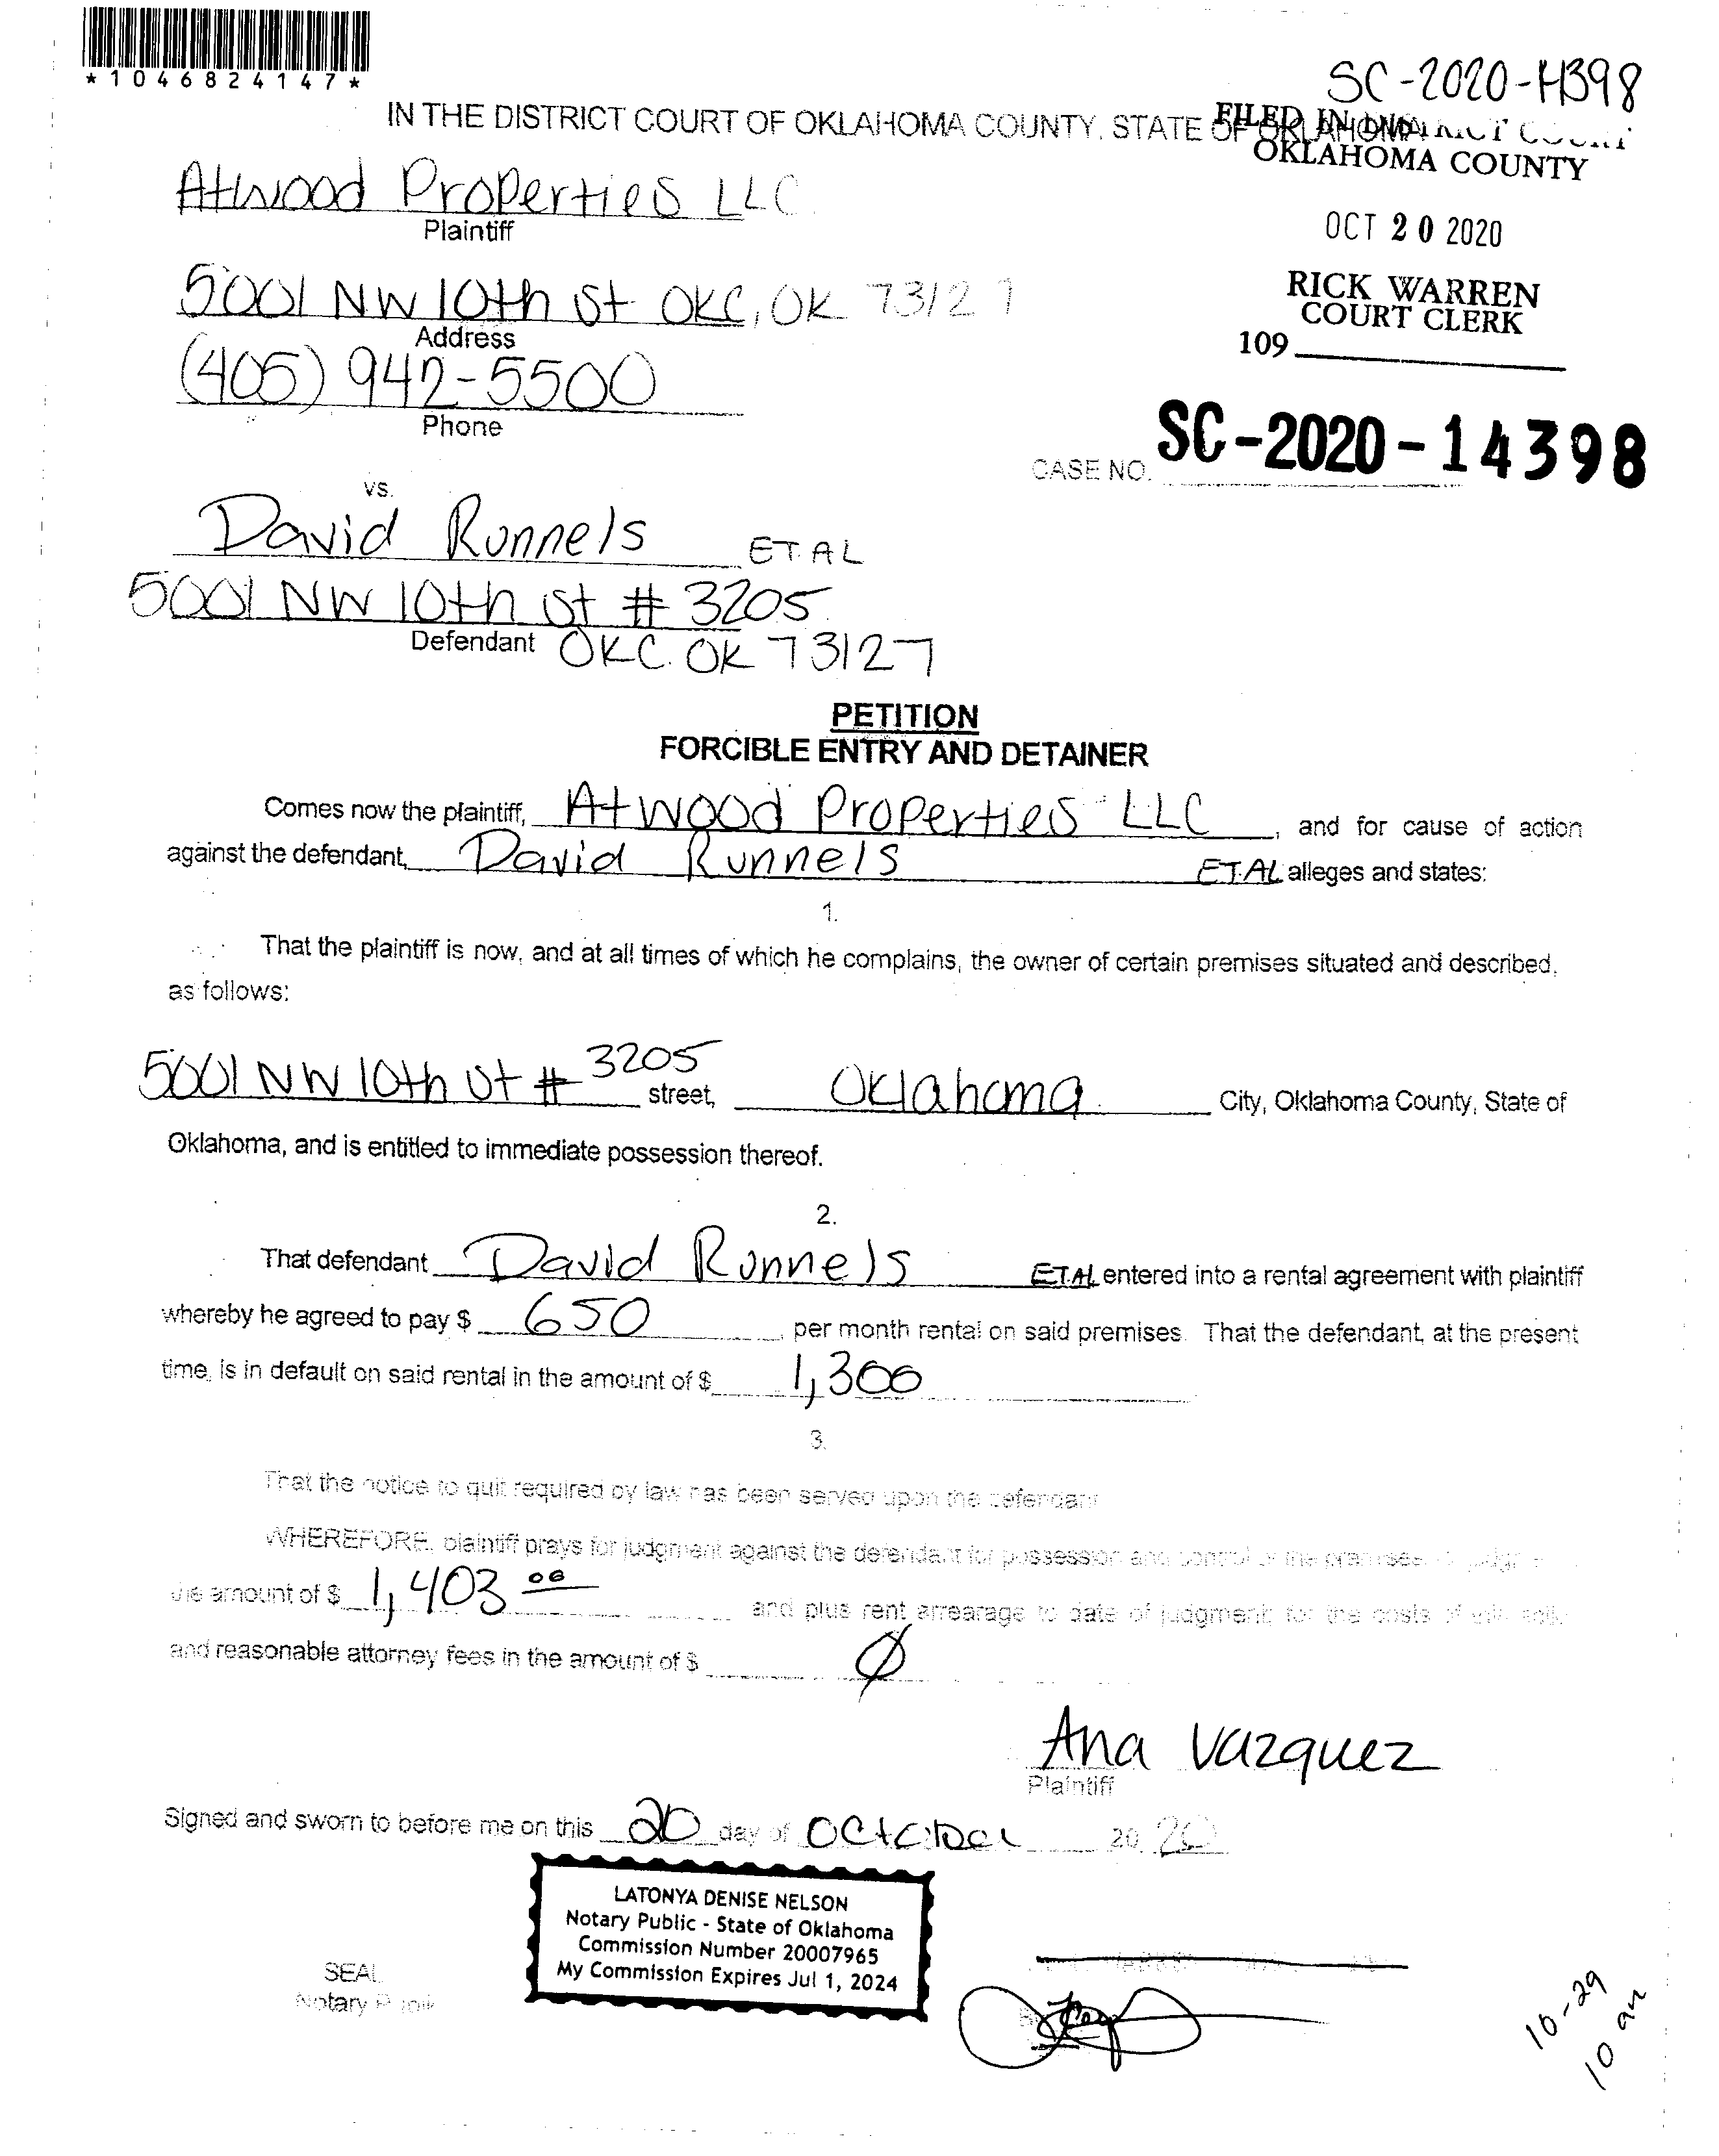 *1046824147*
SC-2020-14398
IN THE DISTRICT COURT OF OKLAHOMA COUNTY, STATE OF OKLAHOMA
FILED IN DISTRICT COURT
OKLAHOMA COUNTY
Atwood Properties LLC
Plaintiff
OCT 20 2020
5001 NW 10th St OKC, OK 73127
Address
RICK WARREN
COURT CLERK
109
(405) 942-5500
Phone
CASE NO. SC-2020-14398
vs.
David Runnels ET. AL
5001 NW 10th St # 3205
Defendant OKC. OK 73127
PETITION
FORCIBLE ENTRY AND DETAINER
Comes now the plaintiff, Atwood Properties LLC, and for cause of action
against the defendant, David Runnels ET.AL alleges and states:
1.
That the plaintiff is now, and at all times of which he complains, the owner of certain premises situated and described,
as follows:
5001 NW 10th St # 3205 street, Oklahoma City, Oklahoma County, State of
Oklahoma, and is entitled to immediate possession thereof.
2.
That defendant David Runnels ET.AL entered into a rental agreement with plaintiff
whereby he agreed to pay $ 650 per month rental on said premises. That the defendant, at the present
time, is in default on said rental in the amount of $ 1,300
3.
That the notice to quit required by law has been served upon the defendant
WHEREFORE, plaintiff prays for judgment against the defendant for possession and control of the premises
the amount of $ 1,403 00 and plus rent arrearage to date of judgment; for the costs of
and reasonable attorney fees in the amount of $ Ø
Ana Vazquez
Plaintiff
Signed and sworn to before me on this 20 day of October 20 20
LATONYA DENISE NELSON
Notary Public - State of Oklahoma
Commission Number 20007965
My Commission Expires Jul 1, 2024
SEAL
Notary Public
10-29
10 am